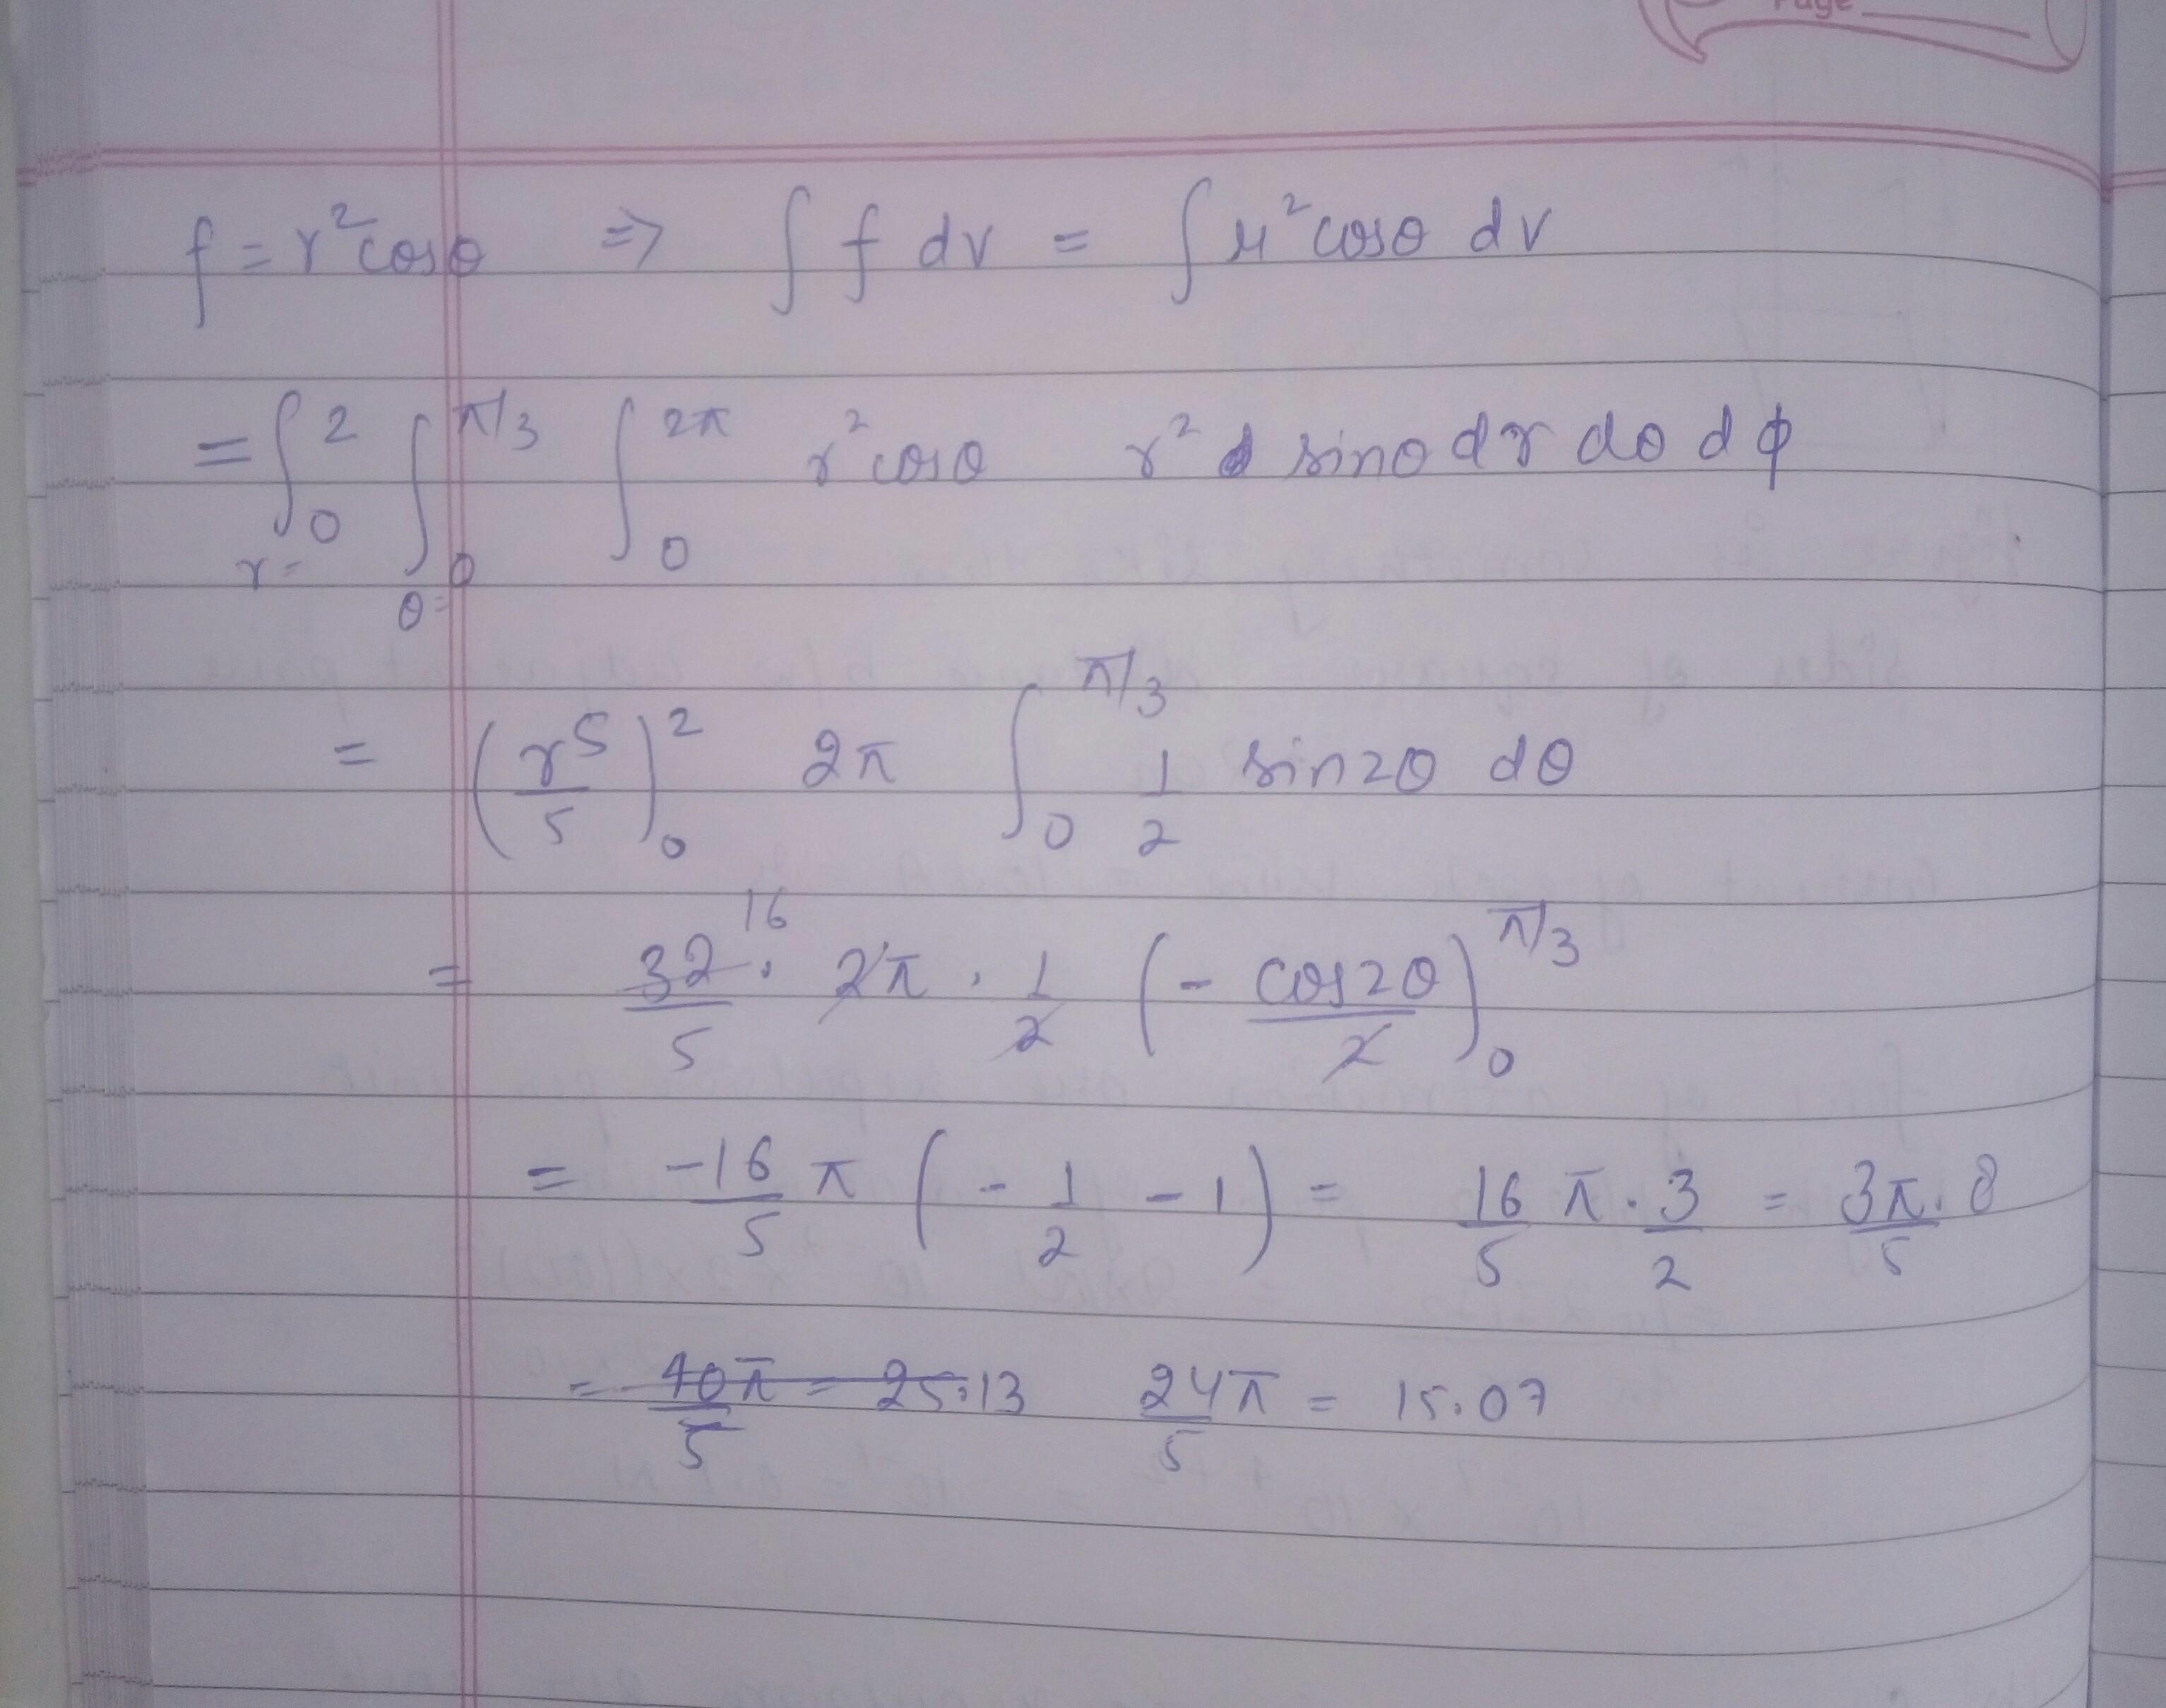 Page
f = r²cosθ ⇒ ∫ f dv = ∫ r²cosθ dv
= ∫₀² ∫₀^π/3 ∫₀^2π r²cosθ r² sinθ dr dθ dϕ
r= θ=
= (r⁵/5)₀² 2π ∫₀^π/3 1/2 sin2θ dθ
= 32/5 16 · 2π · 1/2 (- cos2θ/2)₀^π/3
= -16/5 π (- 1/2 - 1) = 16/5 π · 3/2 = 3π/5 · 8
= 40π/5 = 25.13 24π/5 = 15.07